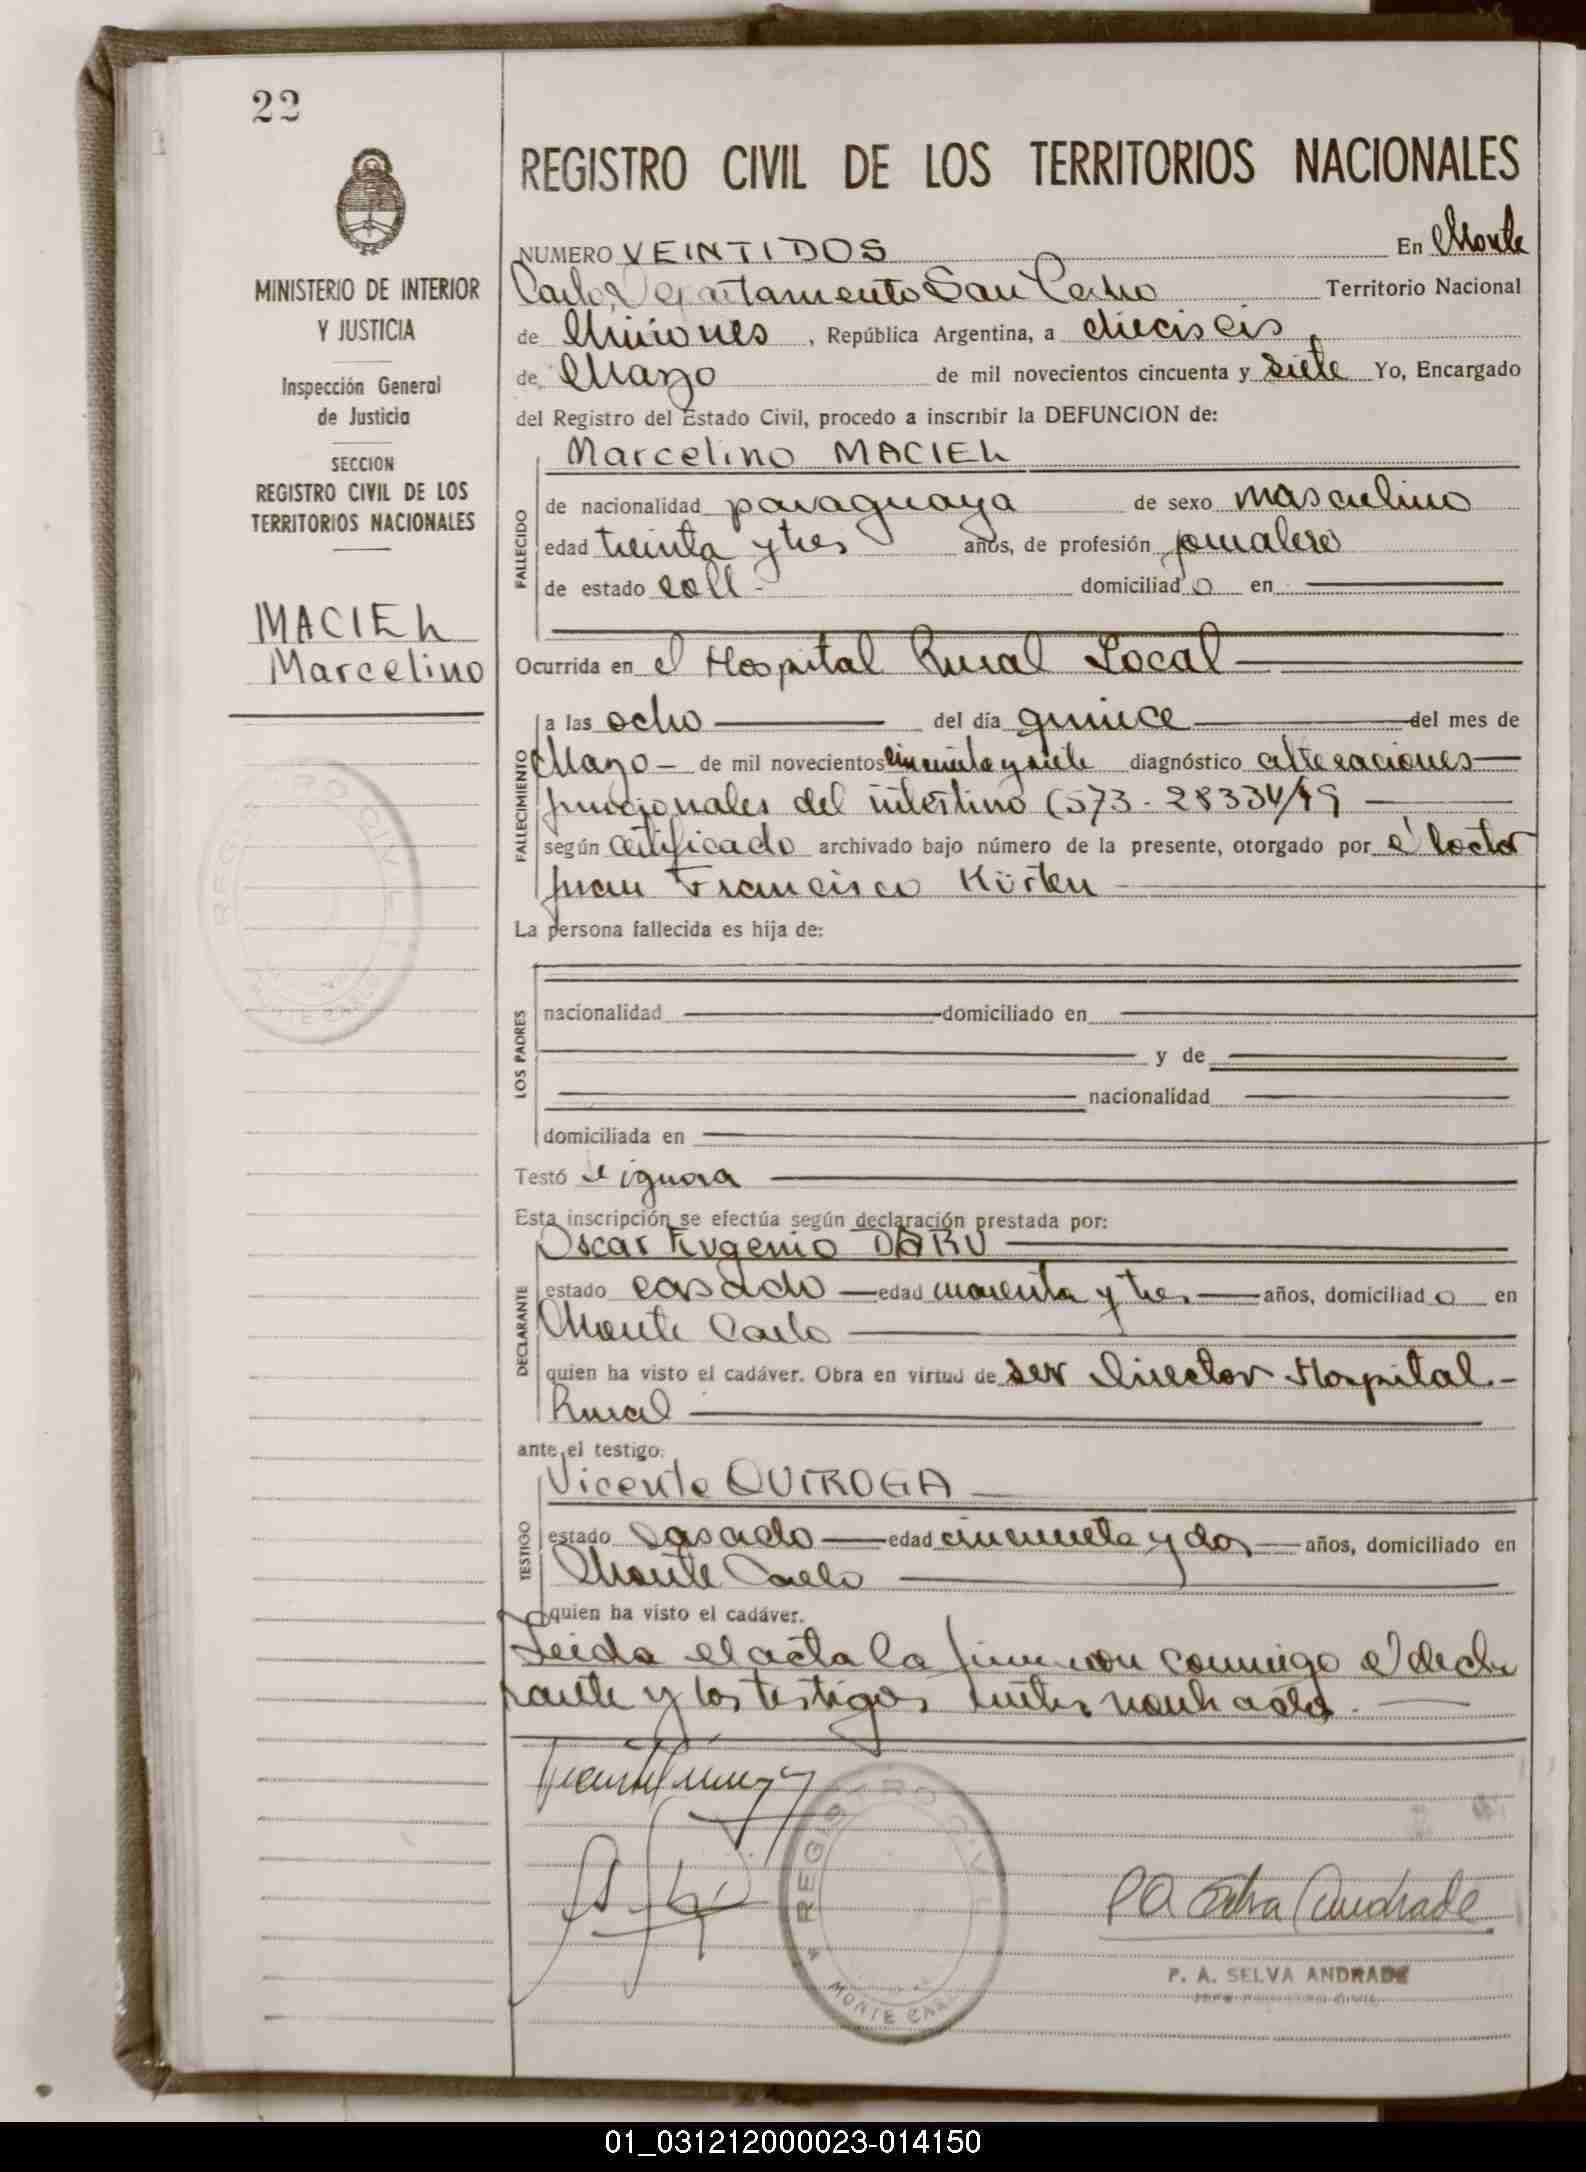 22
MINISTERIO DE INTERIOR
Y JUSTICIA
Inspección General
de Justicia
SECCION
REGISTRO CIVIL DE LOS
TERRITORIOS NACIONALES
MACIEL
Marcelino
REGISTRO CIVIL DE LOS TERRITORIOS NACIONALES
NUMERO VEINTIDOS En Monte
Carlo, Departamento San Pedro Territorio Nacional
de Misiones, República Argentina, a dieciseis
de Mayo de mil novecientos cincuenta y siete Yo, Encargado
del Registro del Estado Civil, procedo a inscribir la DEFUNCION de:
Marcelino MACIEL
FALLECIDO
de nacionalidad paraguaya de sexo masculino
edad treinta y tres años, de profesión jornalero
de estado domiciliado en
Ocurrida en el Hospital Rural Local
FALLECIMIENTO
a las ocho del día quince del mes de
Mayo de mil novecientos cincuenta y siete diagnóstico alteraciones
funcionales del intestino (573-
según certificado archivado bajo número de la presente, otorgado por el doctor
Juan Francisco Kürten
La persona fallecida es hija de:
LOS PADRES
nacionalidad domiciliado en
y de
nacionalidad
domiciliada en
Testó se ignora
Esta inscripción se efectúa según declaración prestada por:
Oscar Eugenio DARU
DECLARANTE
estado casado edad cuarenta y tres años, domiciliado en
Monte Carlo
quien ha visto el cadáver. Obra en virtud de ser Director Hospital
Rural
ante el testigo:
Vicente QUIROGA
TESTIGO
estado casado edad cincuenta y dos años, domiciliado en
Monte Carlo
quien ha visto el cadáver.
Leida el acta la firmaron conmigo el decla
rante y los testigos
REGISTRO CIVIL
MONTE CAR
P A Selva Andrade
P. A. SELVA ANDRADE
JEFE REGISTRO CIVIL
01_031212000023-014150